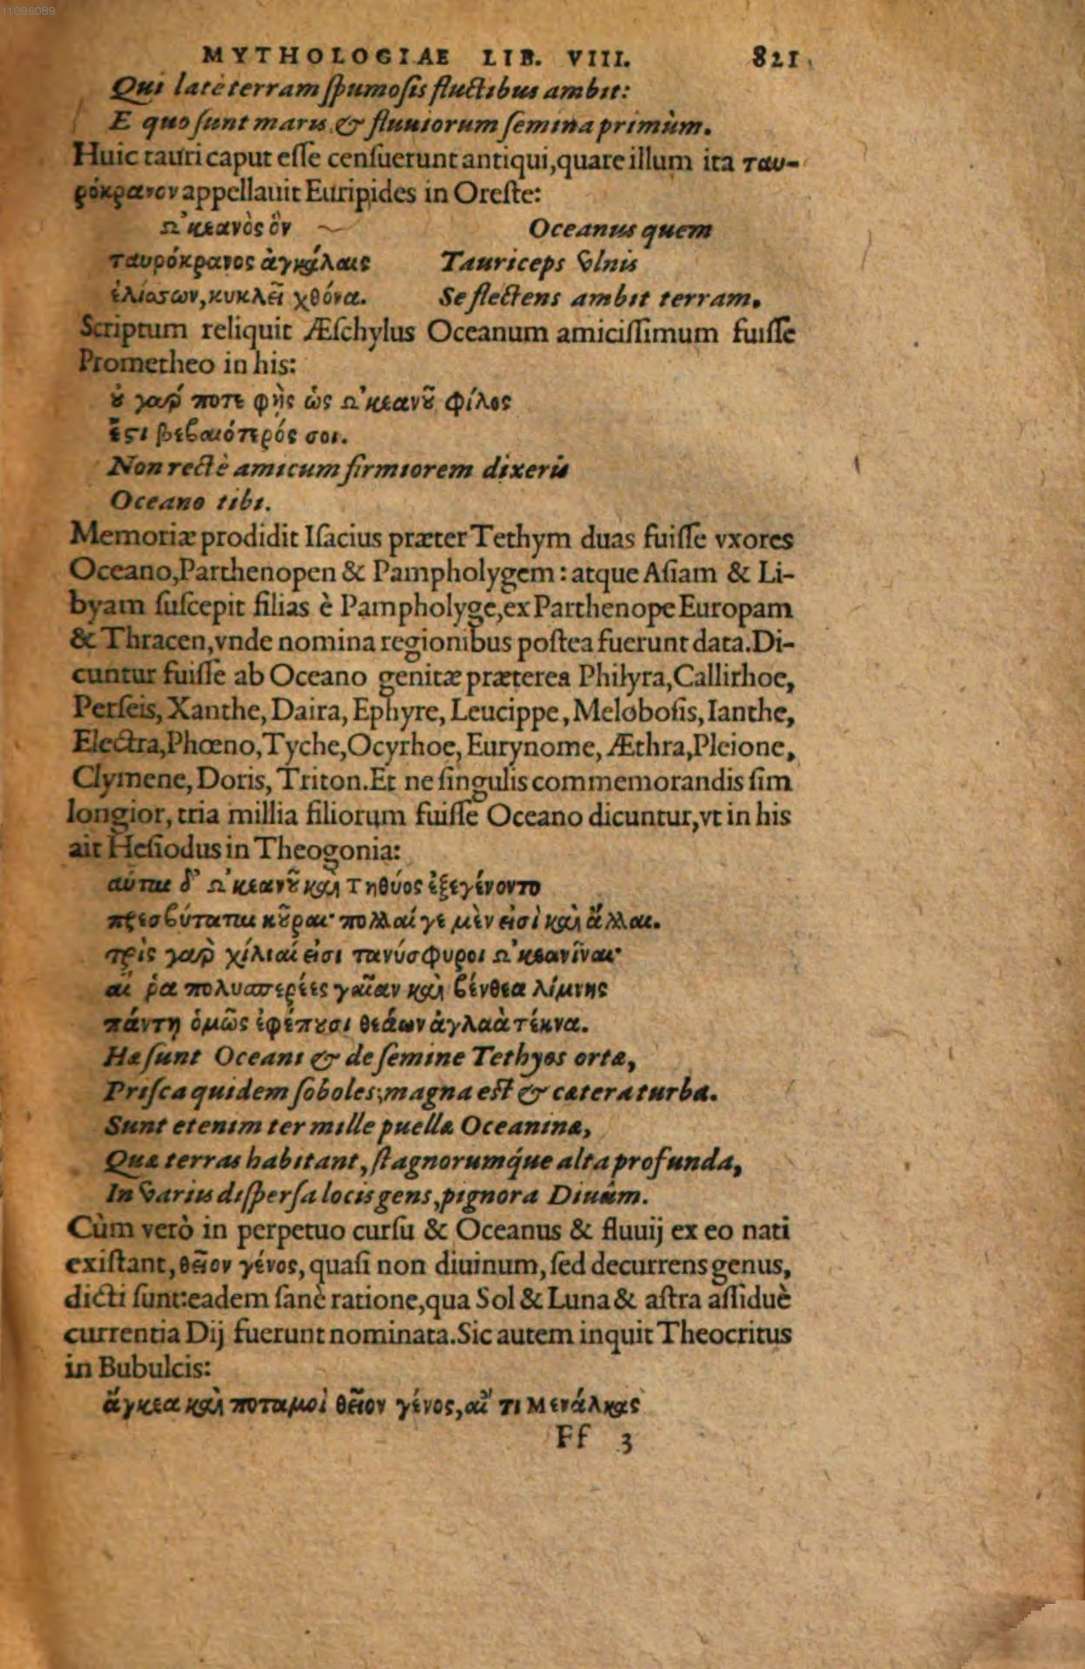 11098089
MYTHOLOGIAE LIB. VIII. 821
Qui latè terram ſpumoſis fluctibus ambit:
E quo ſunt maris & fluuiorum ſemina primùm.
Huic tauri caput eſſe cenſuerunt antiqui, quare illum ita ταυ-
ρόκρανον appellauit Euripides in Oreſte:
Ω᾽κεανὸς ὃν Oceanus quem
ταυρόκρανος ἀγκάλαις Tauriceps vlnis
ἑλίσσων, κυκλεῖ χθόνα. Se flectens ambit terram.
Scriptum reliquit Æſchylus Oceanum amiciſſimum fuiſſe
Prometheo in his:
ȣ γάρ ποτε φῂς ὡς Ω᾽κεανȣ͂ φίλος
ἔϛι βεβαιότερός σοι.
Non rectè amicum firmiorem dixeris
Oceano tibi.
Memoriæ prodidit Iſacius præter Tethym duas fuiſſe vxores
Oceano, Parthenopen & Pampholygem: atque Aſiam & Li-
byam ſuſcepit filias è Pampholyge, ex Parthenope Europam
& Thracen, vnde nomina regionibus poſtea fuerunt data. Di-
cuntur fuiſſe ab Oceano genitæ præterea Philyra, Callirhoe,
Perſeis, Xanthe, Daira, Ephyre, Leucippe, Meloboſis, Ianthe,
Electra, Phœno, Tyche, Ocyrhoe, Eurynome, Æthra, Pleione,
Clymene, Doris, Triton. Et ne ſingulis commemorandis ſim
longior, tria millia filiorum fuiſſe Oceano dicuntur, vt in his
ait Heſiodus in Theogonia:
αὗται δ᾽ Ω᾽κεανȣ͂ καὶ Τηθύος ἐξεγένοντο
πρεσβύταται κȣ͂ραι· πολλαί γε μὲν εἰσὶ καὶ ἄλλαι.
τρὶς γὰρ χίλιαί εἰσι τανύσφυροι Ω᾽κεανῖναι·
αἵ ῥα πολυσπερέες γαῖαν καὶ βένθεα λίμνης
πάντη ὁμῶς ἐφέπȣσι θεάων ἀγλαὰ τέκνα.
Hæ ſunt Oceani & de ſemine Tethyos ortæ,
Priſca quidem ſoboles; magna eſt & cætera turba.
Sunt etenim ter mille puellæ Oceaninæ,
Quæ terras habitant, ſtagnorumq́ue alta profunda,
In variis diſperſa locis gens, pignora Diuûm.
Cùm verò in perpetuo curſu & Oceanus & fluuij ex eo nati
exiſtant, θεῖον γένος, quaſi non diuinum, ſed decurrens genus,
dicti ſunt: eadem ſanè ratione, qua Sol & Luna & aſtra aſſiduè
currentia Dij fuerunt nominata. Sic autem inquit Theocritus
in Bubulcis:
ἄγκεα καὶ ποταμοὶ θεῖον γένος, αἴ τι Μενάλκας
Ff 3